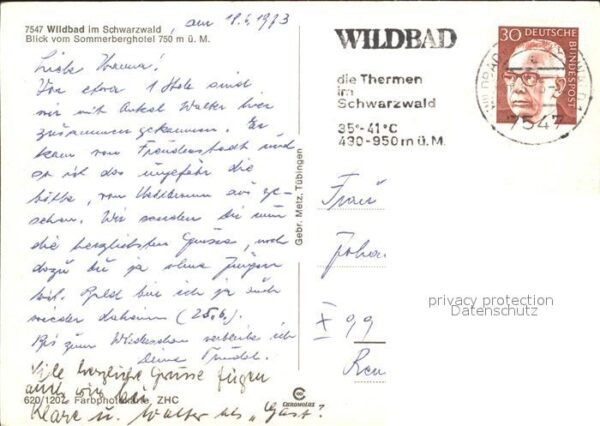 7547 Wildbad im Schwarzwald
Blick vom Sommerberghotel 750 m ü. M.
, am 18.6.1973
Liebe Hanna!
Von etwa 1 Std. sind
wir mit Onkel Walter hier
zusammen gekommen. Er
kam von Freudenstadt und
so ist das ungefähr die
Hälfte, von Heilbronn aus ge-
sehen. Wir senden Dir nun
die herzlichsten Grüsse, noch
dazu Du ja ohne Jürgen
bist. Bald bin ich ja auch
wieder daheim (25.6.)
Bis zum Wiedersehen verbleibe ich
Deine Trudel.
Viele herzliche Grüsse fügen
auch wir bei
Kläre u. Walter als "Gast".
620/1207 Farbphoto ZHC
Gebr. Metz, Tübingen
CEKUMULUS
WILDBAD
die Thermen
im
Schwarzwald
35°-41°C
430-950 m ü. M.
30 DEUTSCHE
BUNDESPOST
7547
Frau
Joha
X 99
privacy protection
Datenschutz